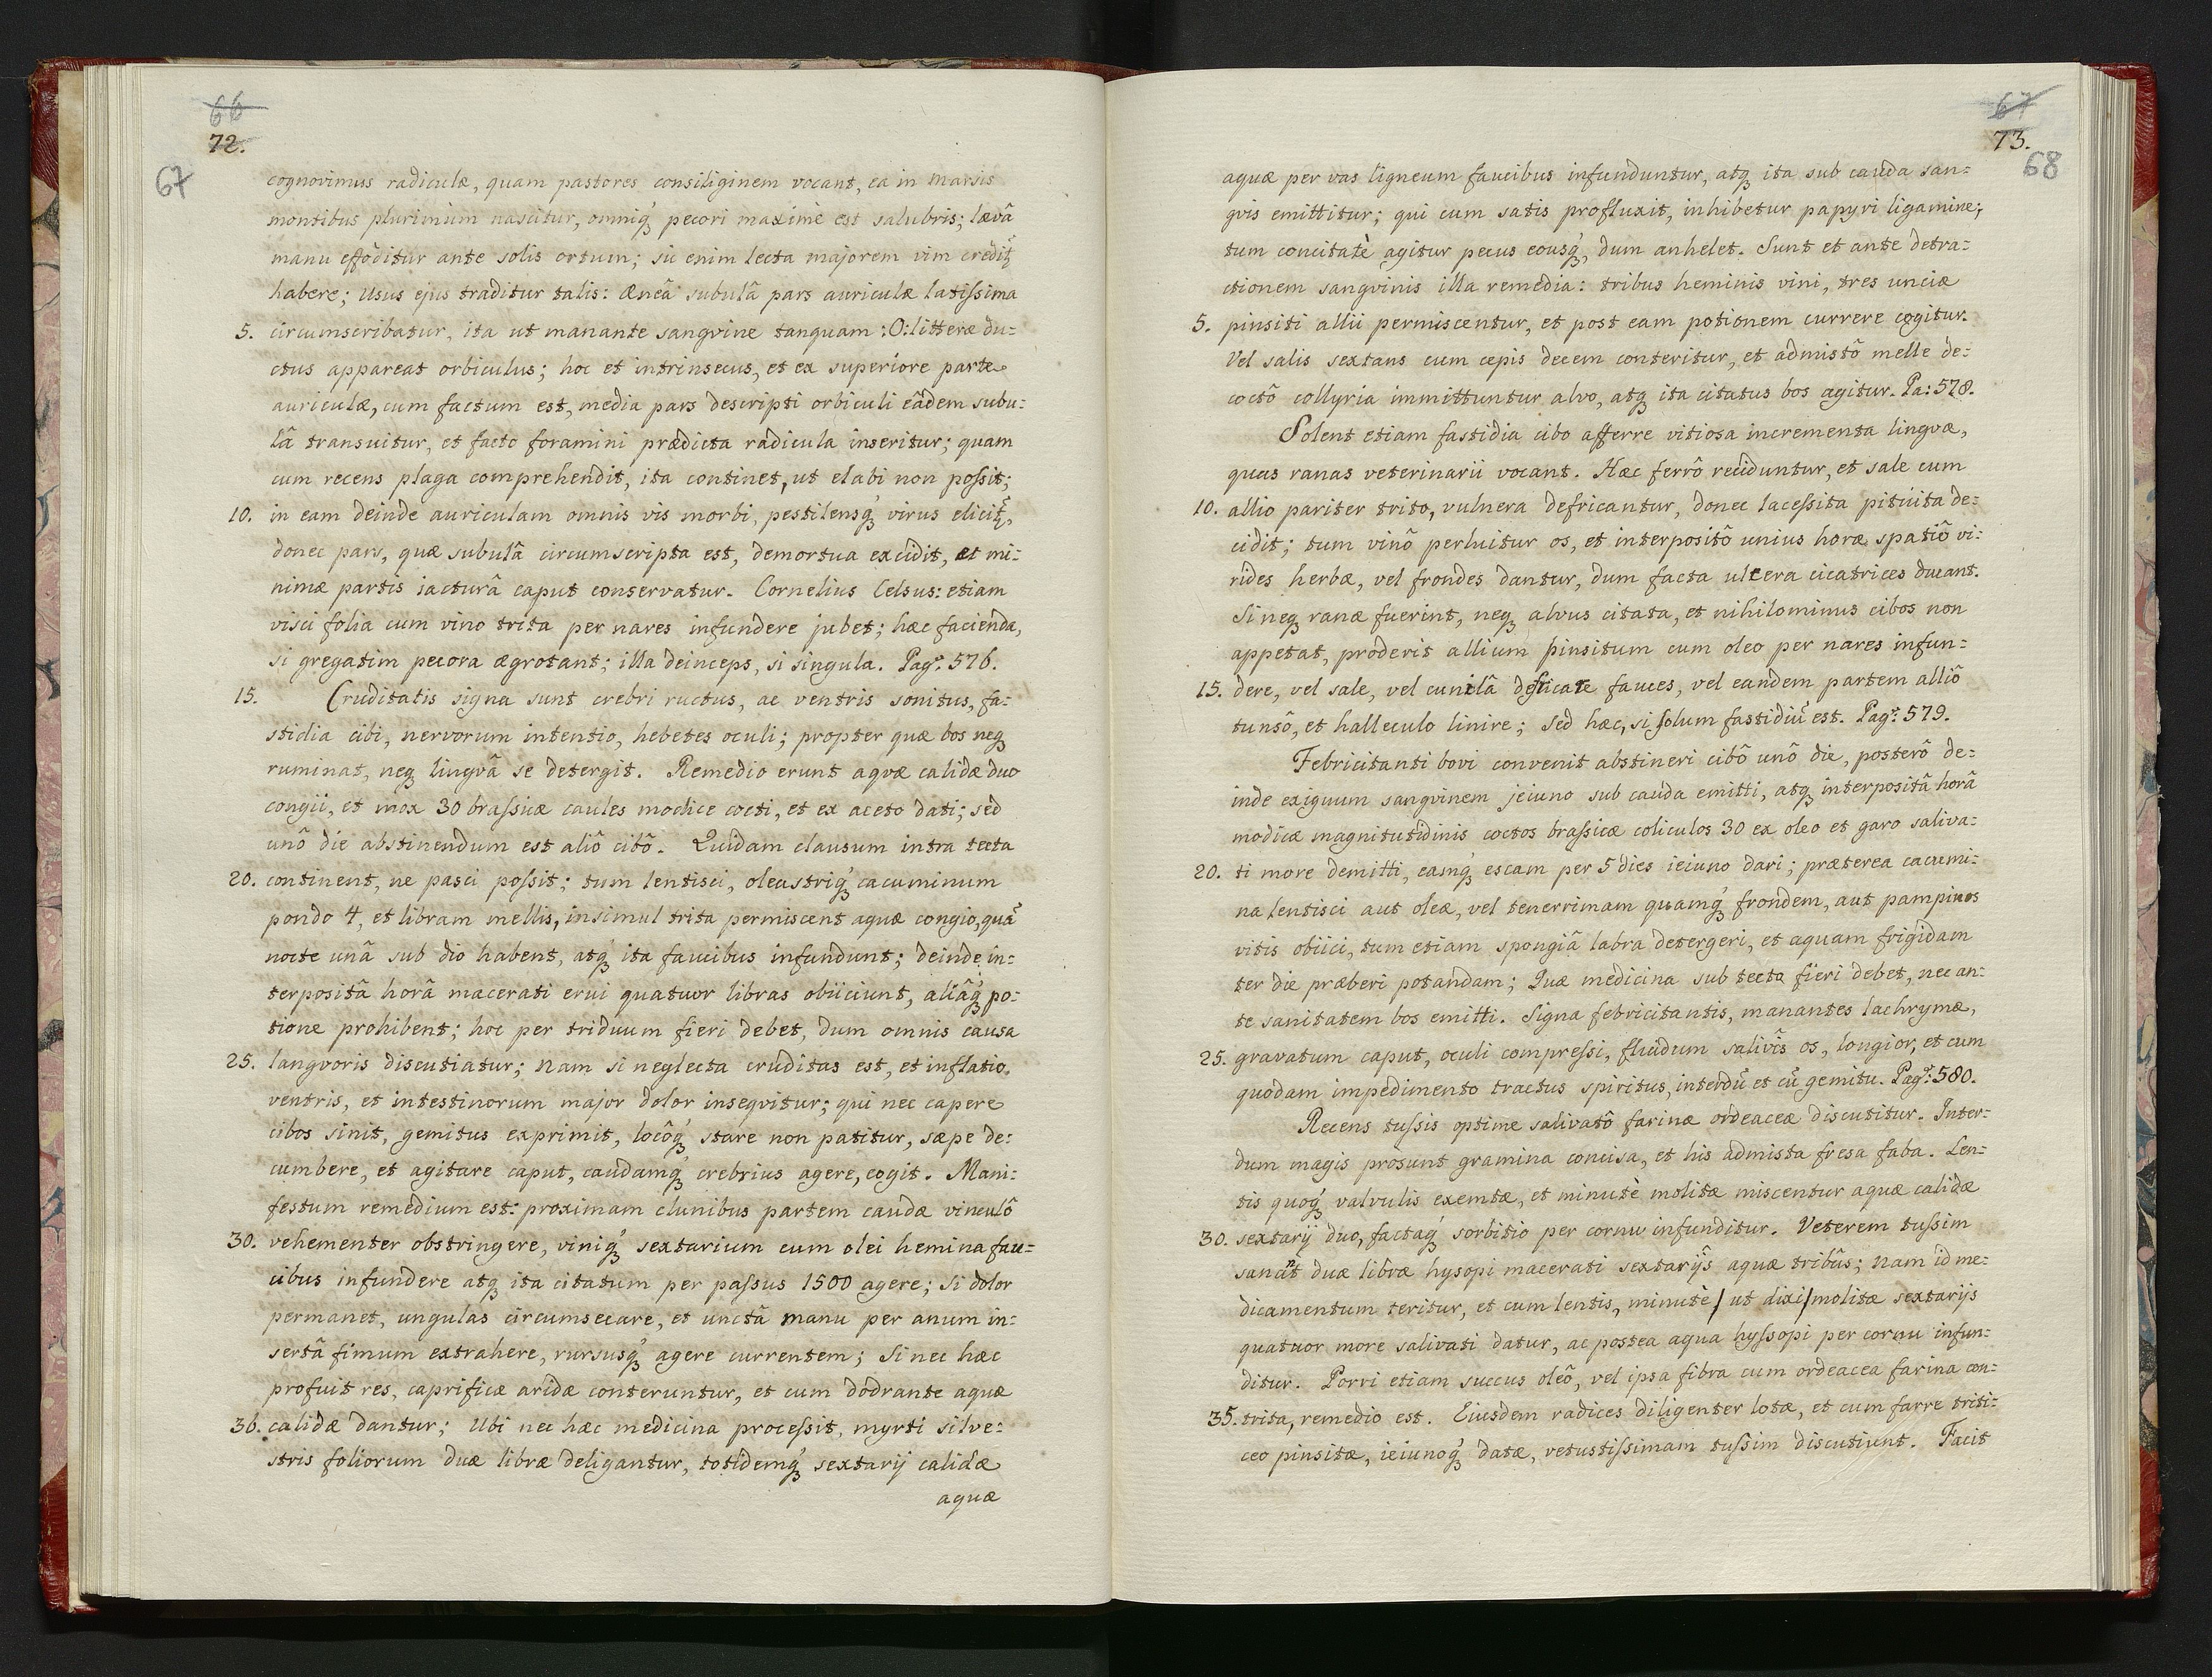 66
72.
67
cognovimus radiculæ, quam pastores consiliginem vocant, ea in marsis
montibus plurimùm nascitur, omniq́ꝫ pecori maximè est salubris; lævâ
manu effoditur ante solis ortum; sic enim lecta majorem vim credit̃
habere; Usus ejus traditur talis: Æneâ subulâ pars auriculæ latiſsima
5. circumscribatur, ita ut manante sangvine tanquam :O: litteræ du=
ctus appareat orbiculus; hoc et intrinsecus, et ex superiore parte
auriculæ, cum factum est, media pars descripti orbiculi eâdem subu=
lâ transuitur, et facto foramini prædicta radicula inseritur; quam
cum recens plaga comprehendit, ita continet, ut elabi non poſsit;
10. in eam deinde auriculam omnis vis morbi, pestilensq́ꝫ virus elicit̃,
donec pars, quæ subulâ circumscripta est, demortua excidit, et mi=
nimæ partis iacturâ caput conservatur. Cornelius Celsus: etiam
visci folia cum vino trita per nares infundere jubet; hæc facienda,
si gregatim pecora ægrotant; illa deinceps, si singula. Pag: 576.
15. Cruditatis signa sunt crebri ructus, ac ventris sonitus, fa=
stidia cibi, nervorum intentio, hebetes oculi; propter quæ bos neqꝫ
ruminat, neqꝫ lingvâ se detergit. Remedio erunt aqvæ calidæ duo
congii, et mox 30 braſsicæ caules modice cocti, et ex aceto dati; sed
unô die abstinendum est aliô cibô. Quidam clausum intra tecta
20. continent, ne pasci poſsit; tum lentisci, oleastriq́ꝫ cacuminum
pondo 4, et libram mellis, insimul trita permiscent aquæ congio, quã
nocte unâ sub dio habent, atqꝫ ita faucibus infundunt; deinde in=
terpositâ horâ macerati ervi quatuor libras obiiciunt, aliâq́ꝫ po=
tione prohibent; hoc per triduum fieri debet, dum omnis causa
25. langvoris discutiatur; Nam si neglecta cruditas est, et inflatio
ventris, et intestinorum major dolor inseqvitur; qui nec capere
cibos sinit, gemitus exprimit, locôq́ꝫ stare non patitur, sæpe de=
cumbere, et agitare caput, caudamq́ꝫ crebrius agere, cogit. Mani=
festum remedium est: proximam clunibus partem caudæ vinculô
30. vehementer obstringere, viniq́ꝫ sextarium cum olei hemina fau=
cibus infundere atqꝫ ita citatum per paſsus 1500 agere; Si dolor
permanet, ungulas circumsecare, et unctâ manu per anum in=
sertâ fimum extrahere, rursusq́ꝫ agere currentem; Si nec hæc
profuit res, caprificæ aridæ conteruntur, et cum dodrante aquæ
36. calidæ dantur; Ubi nec hæc medicina proceſsit, myrti silve=
stris foliorum duæ libræ deligantur, totidemq́ꝫ sextarij calidæ
aquæ
67
73.
68
aquæ per vas ligneum faucibus infunduntur, atqꝫ ita sub cauda san=
gvis emittitur; qui cum satis profluxit, inhibetur papyri ligamine;
tum concitatè agitur pecus eousq́ꝫ, dum anhelet. Sunt et ante detra=
ctionem sangvinis illa remedia: tribus heminis vini, tres unciæ
5. pinsiti allii permiscentur, et post eam potionem currere cogitur.
Vel salis sextans cum cepis decem conteritur, et admistô melle de=
coctô collyria immittuntur alvo, atqꝫ ita citatus bos agitur. Pa: 578.
Solent etiam fastidia cibo afferre vitiosa incrementa lingvæ,
quas ranas veterinarii vocant. Hæc ferrô reciduntur, et sale cum
10. allio pariter trito, vulnera defricantur, donec laceſsita pituita de=
cidit; tum vinô perluitur os, et interpositô unius horæ spatiô vi=
rides herbæ, vel frondes dantur, dum facta ulcera cicatrices ducant.
Si neqꝫ ranæ fuerint, neqꝫ alvus citata, et nihilominus cibos non
appetat, proderit allium pinsitum cum oleo per nares infun=
15. dere, vel sale, vel cunilâ defricare fauces, vel eandem partem alliô
tunsô, et halleculo linire; Sed hæc, si solum fastidiũ est. Pag: 579.
Febricitanti bovi convenit abstineri cibô unô die, posterô de=
inde exiguum sangvinem jeiuno sub cauda emitti, atqꝫ interpositâ horâ
modicæ magnitutidinis coctos braſsicæ coliculos 30 ex oleo et garo saliva=
20. ti more demitti, eamq́ꝫ escam per 5 dies ieiuno dari; præterea cacumi=
na lentisci aut oleæ, vel tenerrimam quamq́ꝫ frondem, aut pampinos
vitis obiici, tum etiam spongiâ labra detergeri, et aquam frigidam
ter die præberi potandam; Quæ medicina sub tecta fieri debet, nec an=
te sanitatem bos emitti. Signa febricitantis, manantes lachrymæ,
25. gravatum caput, oculi compreſsi, fluidum salivîs os, longior, et cum
quodam impedimento tractus spiritus, interdũ et cũ gemitu. Pag: 580.
Recens tuſsis optime salivatô farinæ ordeaceæ discutitur. Inter=
dum magis prosunt gramina concisa, et his admista fresa faba. Len=
tis quoq́ꝫ valvulis exemtæ, et minutè molitæ miscentur aquæ calidæ
30. sextarij duo, factaq́ꝫ sorbitio per cornu infunditur. Veterem tuſsim
sanãt duæ libræ hysopi macerati sextarijs aquæ tribûs; Nam id me=
dicamentum teritur, et cum lentis, minutè / ut dixi / molitæ sextarijs
quatuor more salivati datur, ac postea aqua hyſsopi per cornu infun=
ditur. Porri etiam succus oleô, vel ipsa fibra cum ordeacea farina con=
35. trita, remedio est. Eiusdem radices diligenter lotæ, et cum farre triti=
ceo pinsitæ, ieiunoq́ꝫ datæ, vetustiſsimam tuſsim discutiunt. Facit